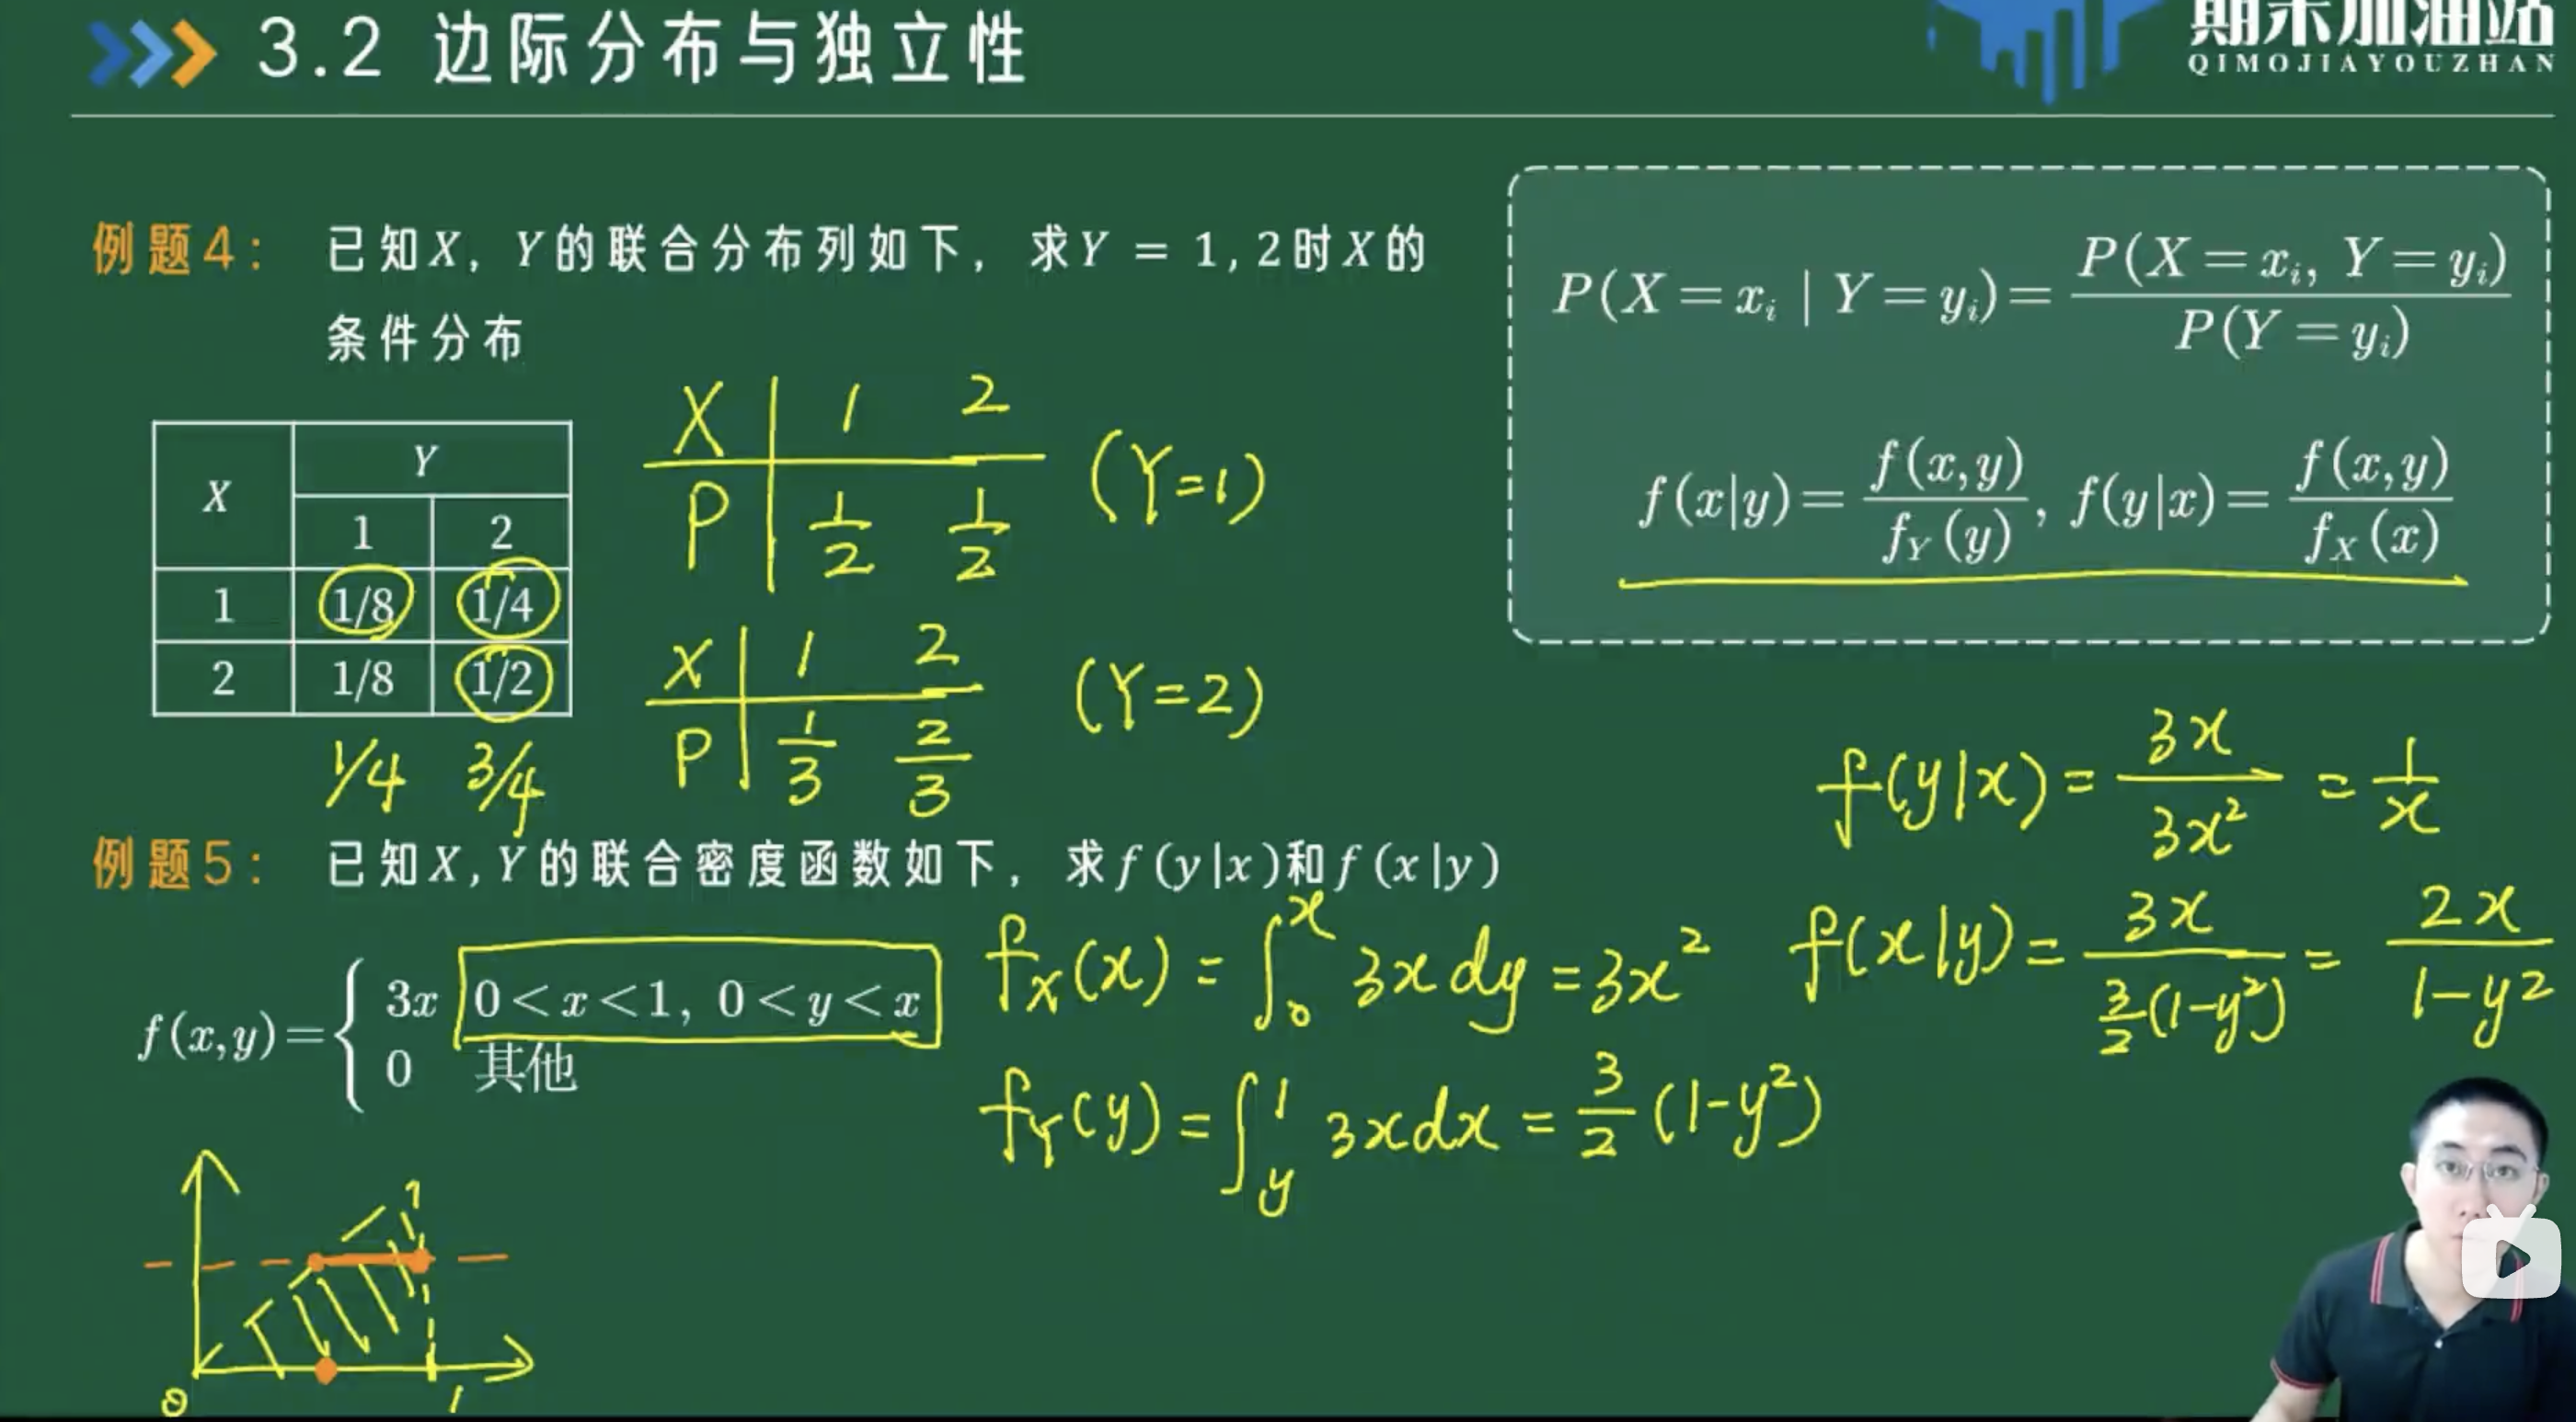 3.2 边际分布与独立性
期末加油站
QIMOJIAYOUZHAN
例题4： 已知X，Y的联合分布列如下，求Y = 1,2时X的
条件分布
X Y
1 2
1 1/8 1/4
2 1/8 1/2
1/4 3/4
X 1 2
P 1/2 1/2 (Y=1)
X 1 2
P 1/3 2/3 (Y=2)
P(X=xᵢ | Y=yᵢ)= P(X=xᵢ, Y=yᵢ) / P(Y=yᵢ)
f(x|y)= f(x,y) / f_Y(y), f(y|x)= f(x,y) / f_X(x)
例题5： 已知X,Y的联合密度函数如下，求f(y|x)和f(x|y)
f(x,y)= { 3x 0<x<1, 0<y<x
0 其他
f_X(x) = ∫₀ˣ 3x dy = 3x²
f_Y(y) = ∫_y^1 3x dx = 3/2 (1-y²)
f(y|x) = 3x / 3x² = 1/x
f(x|y) = 3x / 3/2(1-y²) = 2x / 1-y²
1
0 1